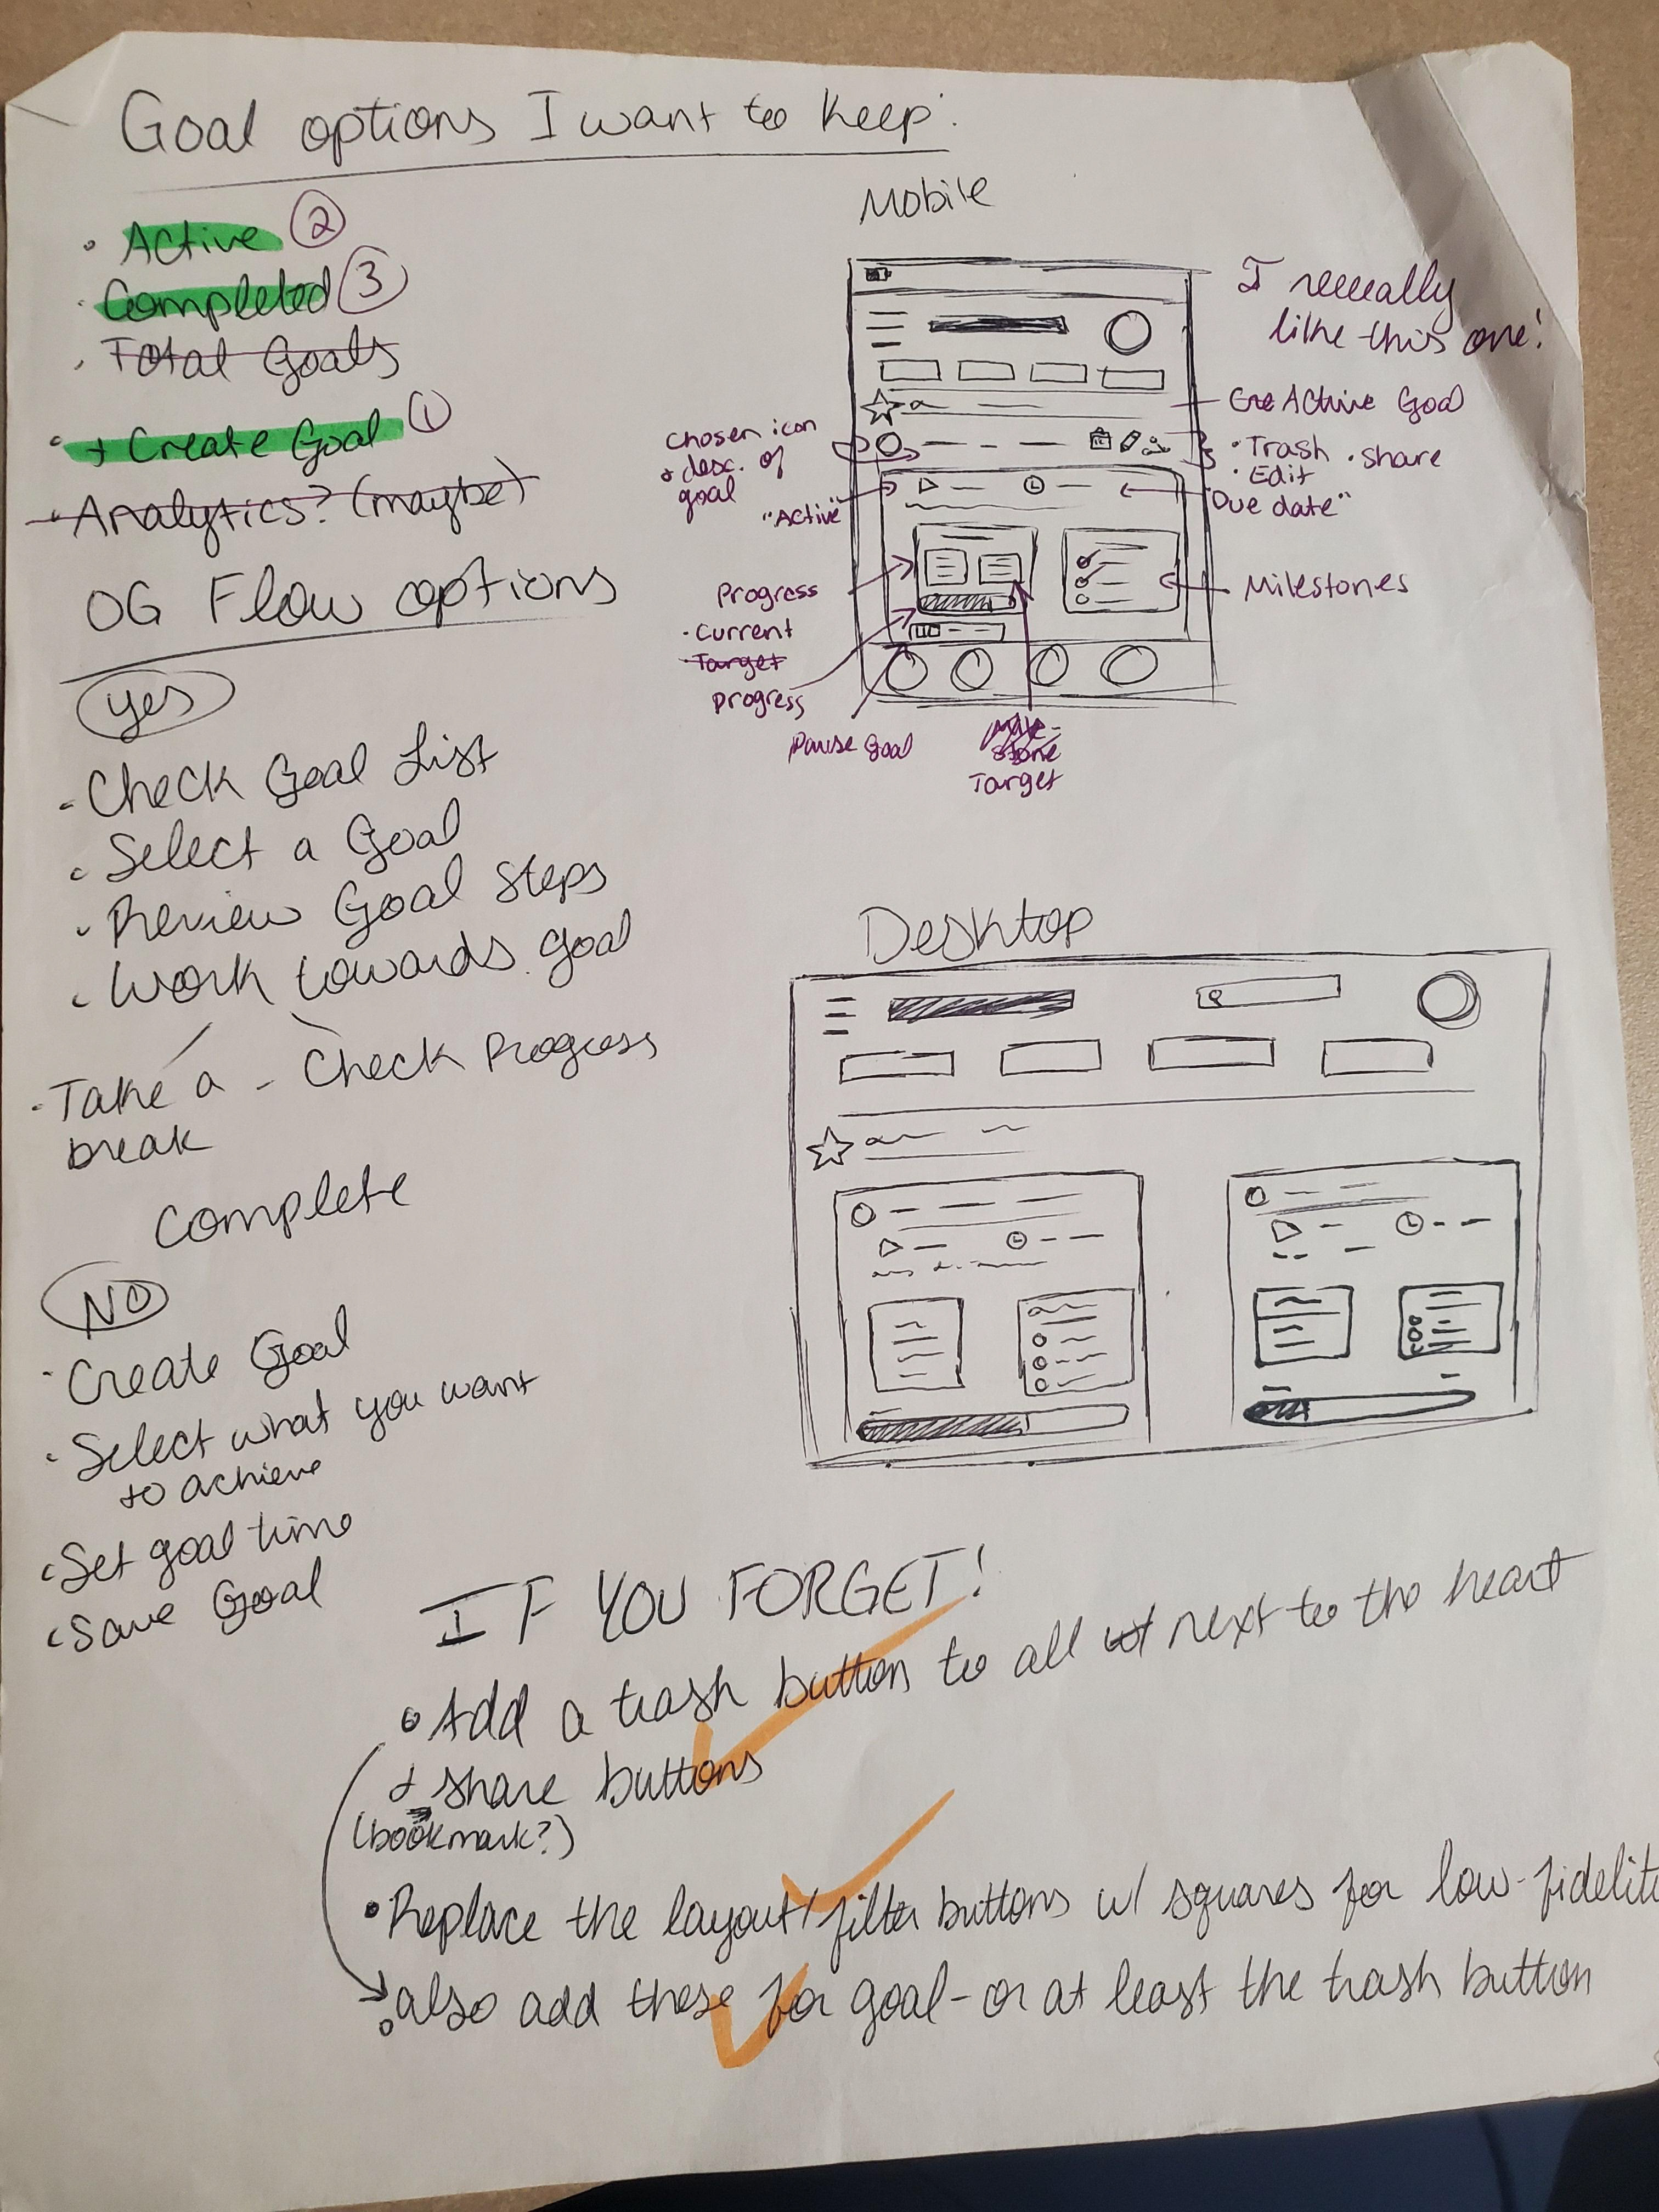 Goal options I want to keep:
• Active ②
• Completed ③
• Total Goals
• + Create Goal ①
• Analytics? (maybe)
OG Flow options
Yes
- Check Goal List
• Select a Goal
• Review Goal Steps
• Work towards goal
• Take a - Check Progress
break
Complete
NO
• Create Goal
• Select what you want
to achieve
• Set goal time
• Save Goal
Mobile
I reeeally
like this one!
Active Goal
• Trash • share
• Edit
"Due date"
Milestones
Chosen icon
+ desc. of
goal
"Active"
Progress
• Current
• Target
progress
Pause Goal
Mile-
stone
Target
Desktop
IF YOU FORGET!
• Add a trash button to all next to the heart
+ share buttons
(bookmark?)
• Replace the layout/filter buttons w/ squares for low-fidelit
• also add these for goal - or at least the trash button